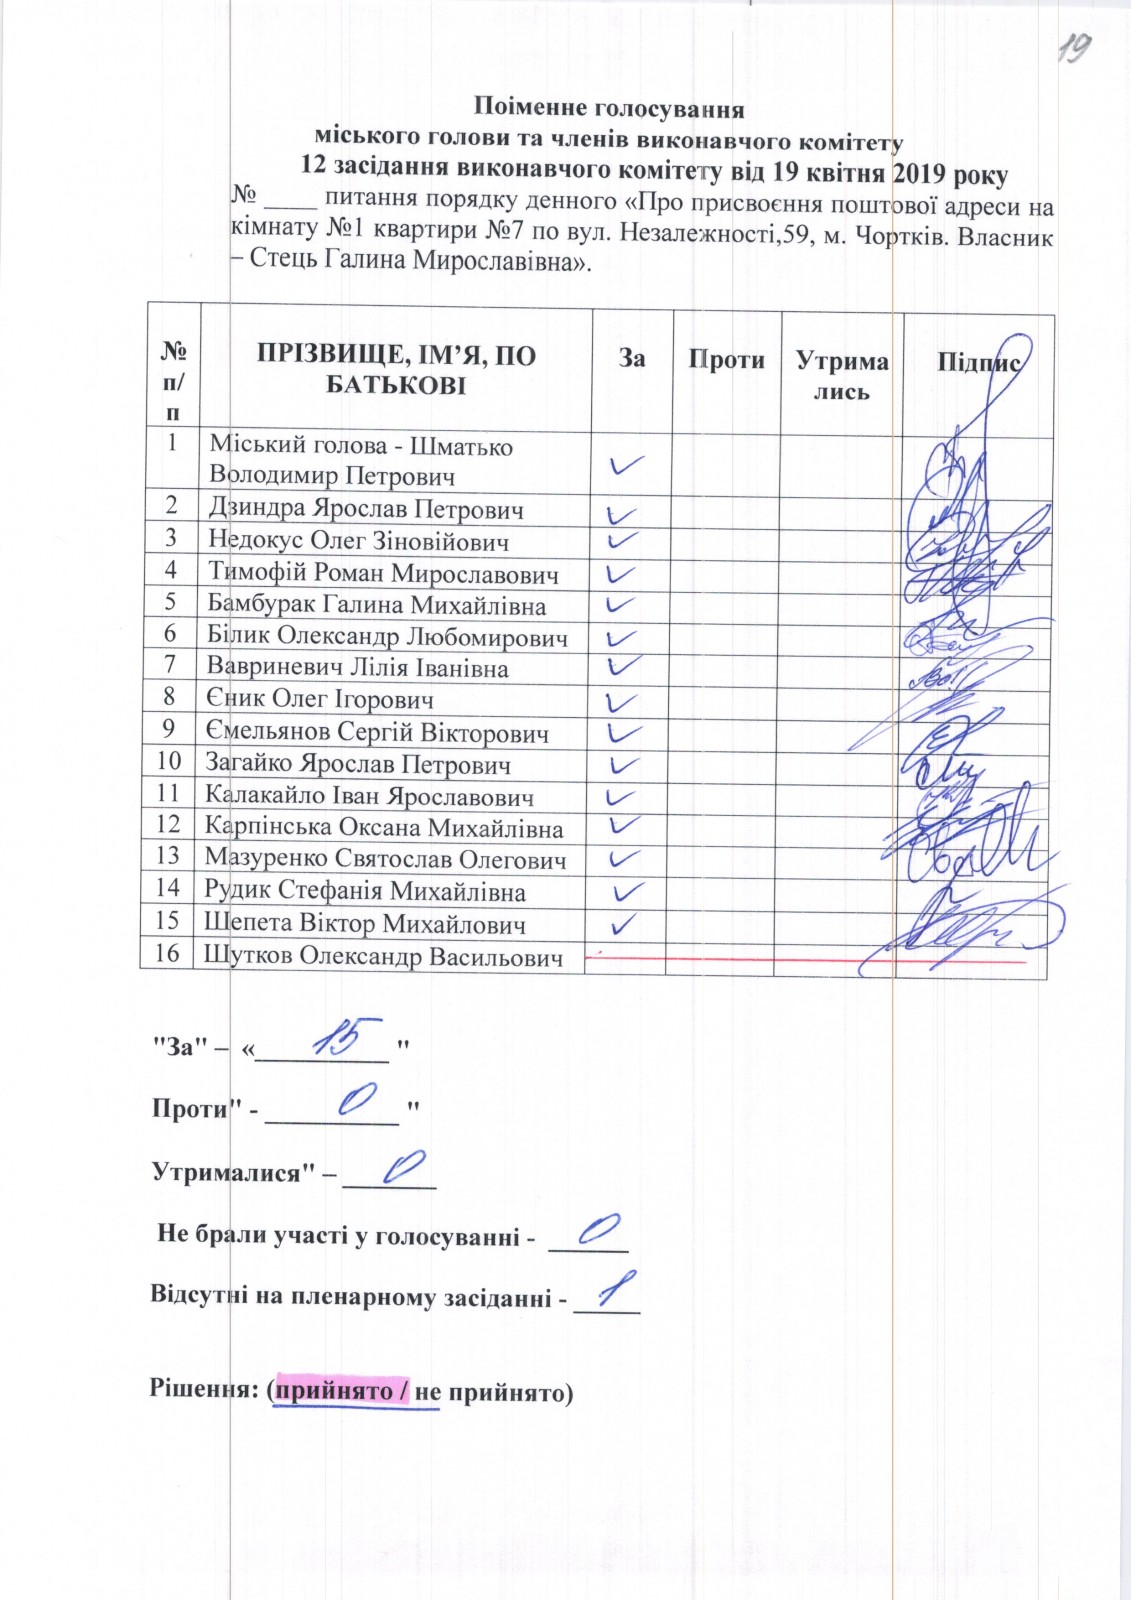 19
Поіменне голосування
міського голови та членів виконавчого комітету
12 засідання виконавчого комітету від 19 квітня 2019 року
№ ____ питання порядку денного «Про присвоєння поштової адреси на
кімнату №1 квартири №7 по вул. Незалежності,59, м. Чортків. Власник
– Стець Галина Мирославівна».
№ п/п ПРІЗВИЩЕ, ІМ’Я, ПО БАТЬКОВІ За Проти Утрима лись Підпис
1 Міський голова - Шматько
Володимир Петрович ✓
2 Дзиндра Ярослав Петрович ✓
3 Недокус Олег Зіновійович ✓
4 Тимофій Роман Мирославович ✓
5 Бамбурак Галина Михайлівна ✓
6 Білик Олександр Любомирович ✓
7 Вавриневич Лілія Іванівна ✓
8 Єник Олег Ігорович ✓
9 Ємельянов Сергій Вікторович ✓
10 Загайко Ярослав Петрович ✓
11 Калакайло Іван Ярославович ✓
12 Карпінська Оксана Михайлівна ✓
13 Мазуренко Святослав Олегович ✓
14 Рудик Стефанія Михайлівна ✓
15 Шепета Віктор Михайлович ✓
16 Шутков Олександр Васильович
"За" – « 15 "
Проти" - 0 "
Утрималися" – 0
Не брали участі у голосуванні - 0
Відсутні на пленарному засіданні - 1
Рішення: (прийнято / не прийнято)